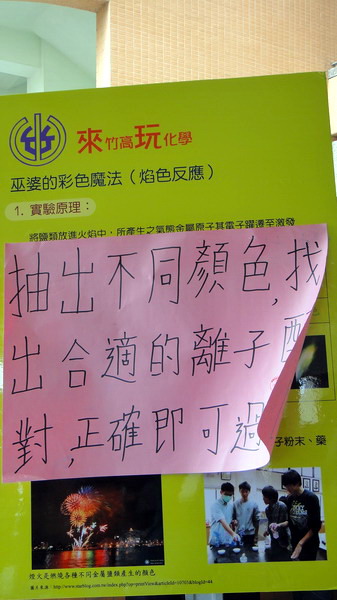 來竹高玩化學
巫婆的彩色魔法（焰色反應）
1. 實驗原理：
將鹽類放進火焰中，所產生之氣態金屬原子其電子躍遷至激發
抽出不同顏色,找
出合適的離子配
對,正確即可過
子粉末、藥
煙火是燃燒各種不同金屬鹽類產生的顏色